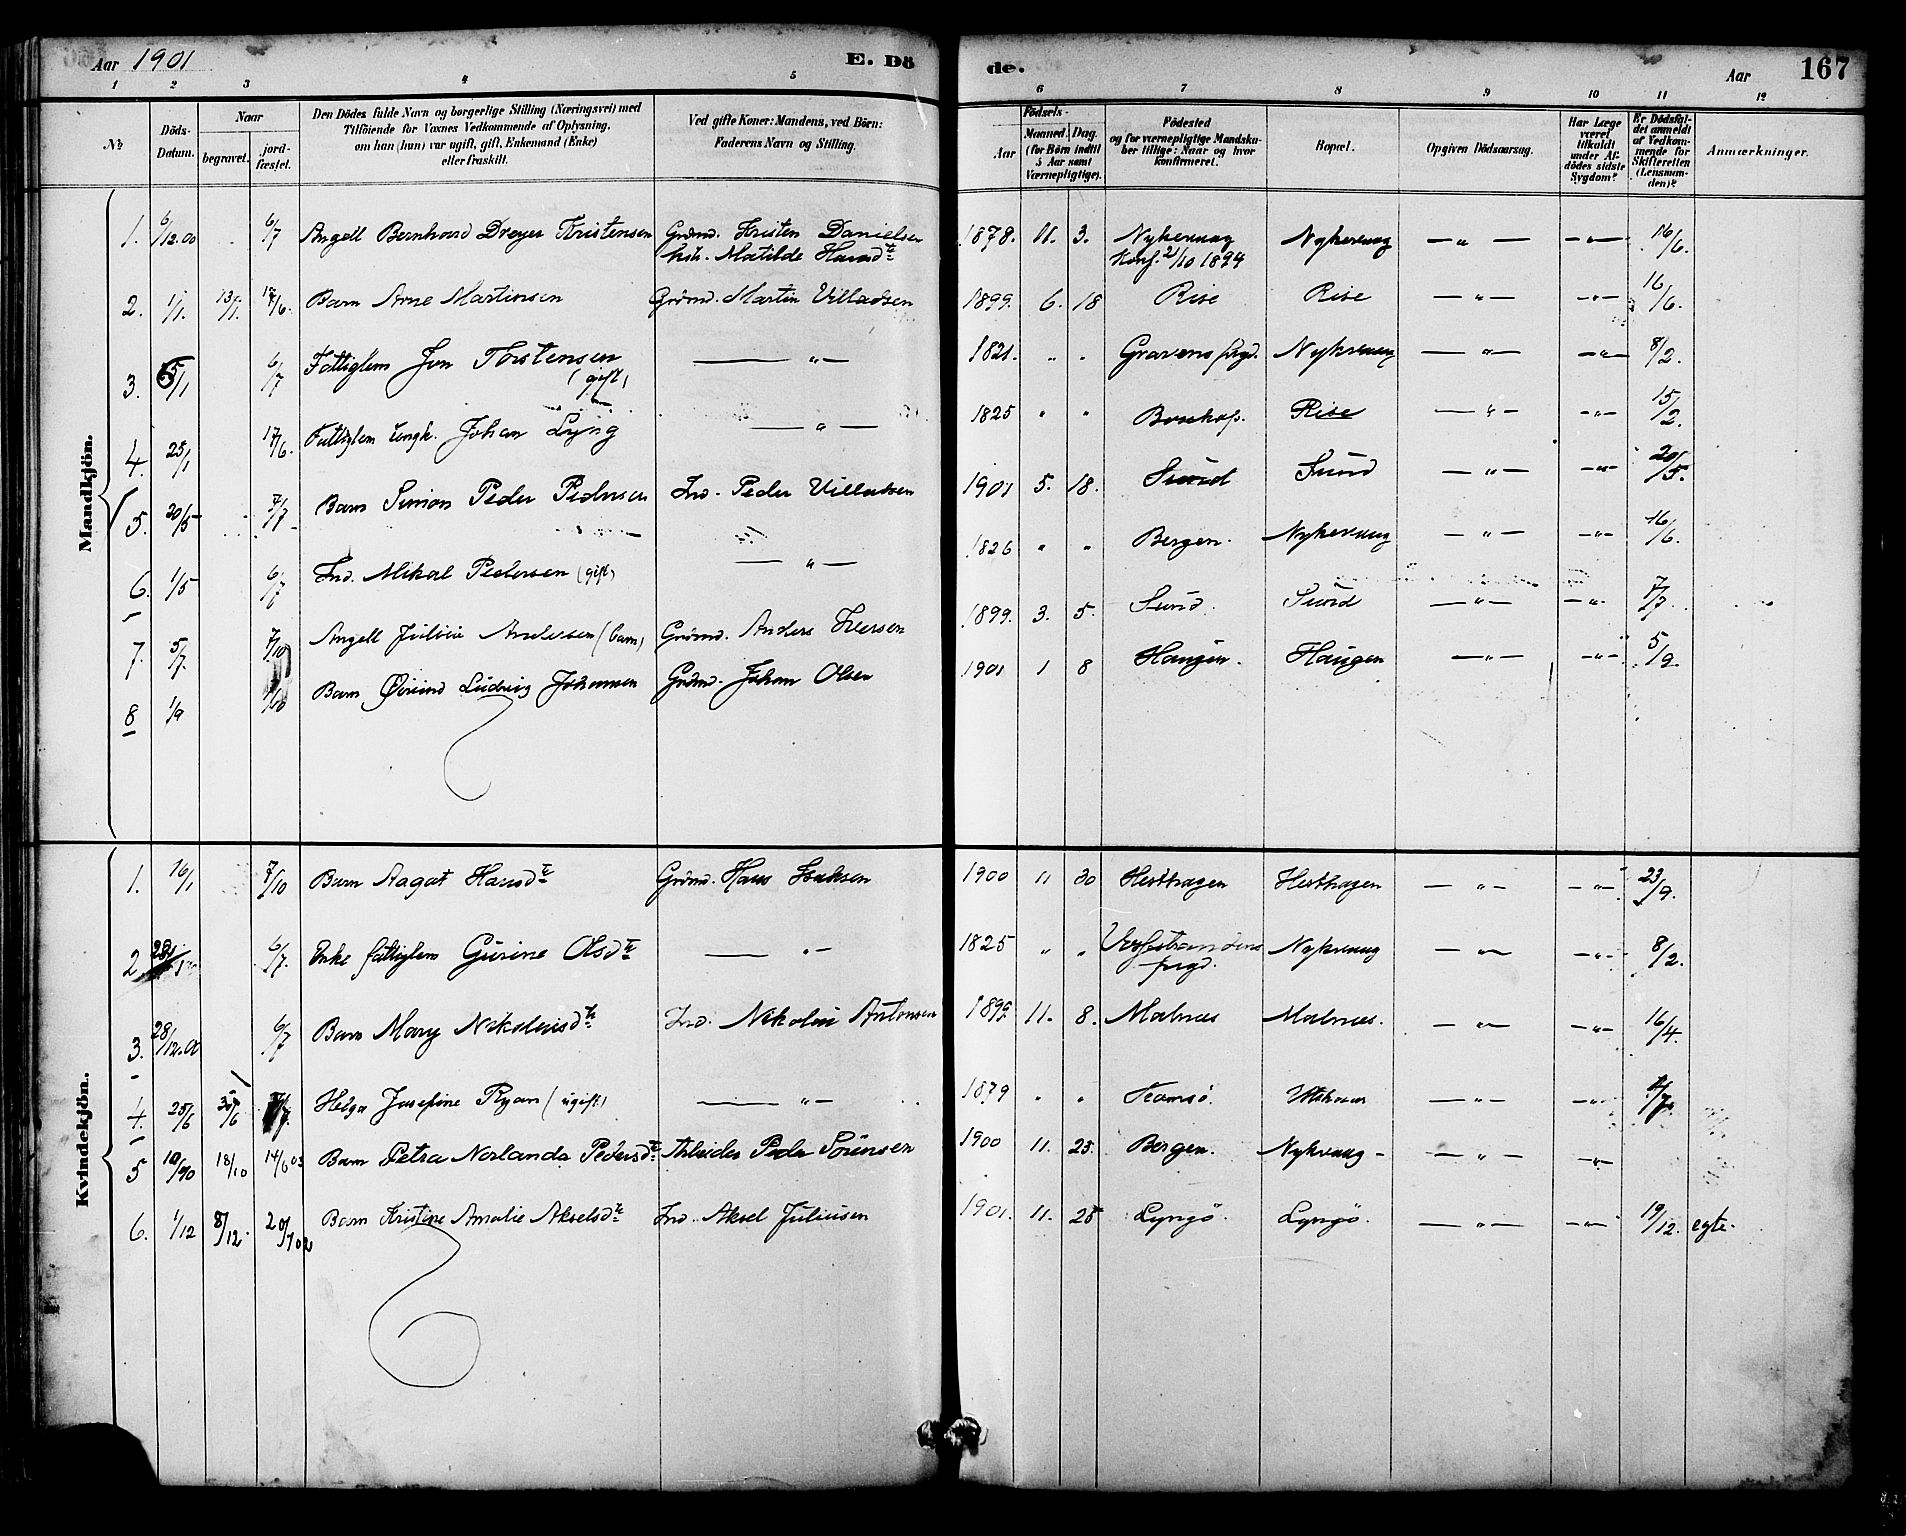 Aar 1901 E. Dö de. Aar 167
1 2 3 4 5 6 7 8 9 10 11 12
No
Döds-
Datum.
Naar
begravet.
jord-
fæstet.
Den Dödes fulde Navn og borgerlige Stilling (Næringsvei) med
Tilföiende for Voxnes Vedkommende af Oplysning,
om han (hun) var ugift, gift, Enkemand (Enke)
eller fraskilt.
Ved gifte Koner: Mandens, ved Börn:
Faderens Navn og Stilling.
Födsels-
Aar
Maaned. Dag.
(for Börn indtil
5 Aar samt
Værnepligtige).
Födested
og for værnepligtige Mandska-
ber tillige: Naar og hvor
konfirmeret.
Bopæl.
Opgiven Dödsaarsag.
Har Læge
været
tilkaldt
under Af-
dödes sidste
Sygdom?
Er Dödsfal-
det anmeldt
af Vedkom-
mende for
Skifteretten
(Lensman-
den)?
Anmærkninger.
Mandkjön.
1. 6/12.00 6/7 Angell Bernhard Dreyer Kristensen Grdmd. Kristen Danielsen 1878. 11. 3. Nykvaag Nykvaag — " — — " — 16/6.
hst. Matilde Hansdtr Konf. 2/10 1894
2. 1/1. 13/1. 17/6. Barn Arne Martinsen Grdmd. Martin Villadsen 1899. 6. 18 Rise Rise — " — — " — 16/6.
3. 5/1 6/7 Fattiglem Jon Torstensen — " — 1821. " " Gravens prgd. Nykvaag — " — — " — 8/2.
(gift)
4. 25/1 17/6. Fattiglem ungk. Johan Lyng — " — 1825 " " Bosekop. Rise — " — — " — 15/2.
5. 20/5 7/7 Barn Simon Peder Pedersen Ind. Peder Villadsen 1901 5. 18. Sund Sund — " — — " — 20/5.
6. 1/5 6/7 Ind. Mikal Pedersen (gift) — " — 1826 " " Bergen. Nykvaag — " — — " — 16/6.
7. 5/7 7/10 Angell Julius Andersen (barn) Grdmd. Anders Iversen 1899. 3. 5. Sund. Sund — " — — " — 7/7
8 1/9 Barn Øivind Ludvig Johansen Grdmd. Johan Olsen 1901 1 8 Haugen. Haugen — " — — " — 5/9.
Kvindekjön.
1. 16/1 7/10 Barn Aagot Hansdtr Grdmd. Hans Isaksen 1900 11 30 Hesthagen Hesthagen — " — — " — 23/9.
2. 6/7. Enke fattiglem Gurine Olsdtr — " — 1825 " " Nykvaag — " — — " — 8/2.
prgd.
3. 28/12.00 6/7 Barn Mary Nikolaisdtr Ind. Nikolai Antonsen 1899 11. 8. Malnes Malnes. — " — — " — 16/4.
4. 25/6 30/6 Helga Josefine Ryan (ugift) — " — 1879 " " Tromsø. — " — — " —
5 10/10 18/10 14/6 03 Barn Petra Norlanda Pedersdtr Arbeider Peder Sörensen 1900 11. 23. Bergen. Nykvaag — " — — " —
6. 1/12 8/12. 20/7 02 Barn Kristine Amalie Akselsdtr Ind. Aksel Juliussen 1901. 11. 25 Lyngö. Lyngö. — " — — " — 19/12. egte.